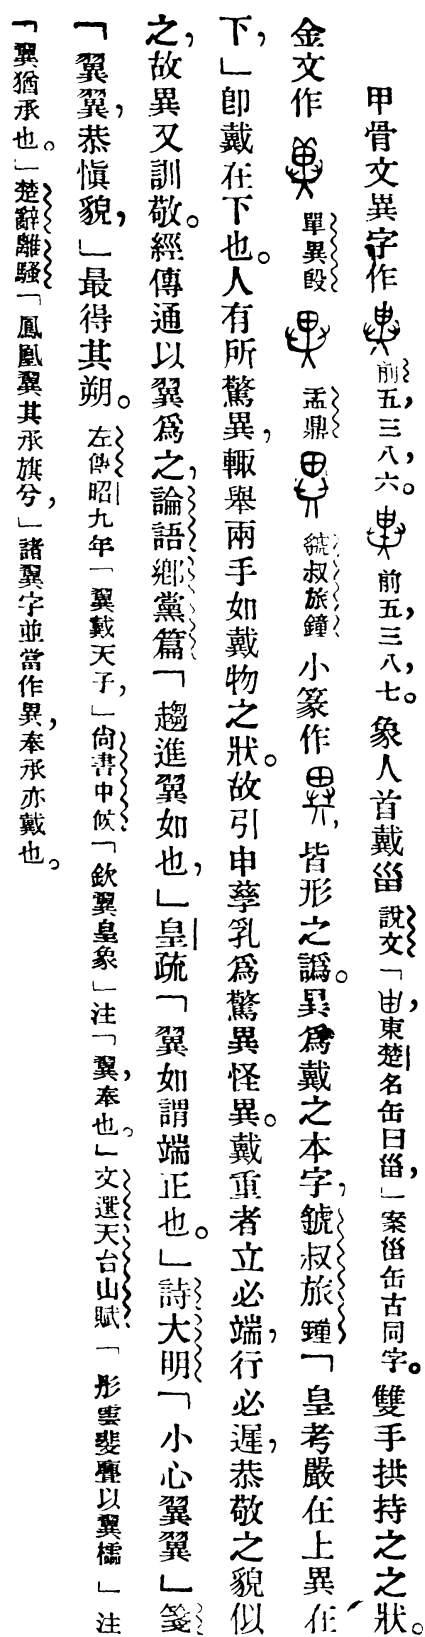 甲骨文異字作 前五、三八、六。 前五、三八、七。象人首戴甾說文「甶，東楚名缶曰甾，」案甾缶古同字。雙手拱持之之狀。
金文作 單異𣪘 盂鼎 虢叔旅鐘 小篆作 ，皆形之譌。異爲戴之本字，虢叔旅鐘「皇考嚴在上異在
下，」卽戴在下也。人有所驚異，輒舉兩手如戴物之狀。故引申孳乳爲驚異怪異。戴重者立必端，行必遲，恭敬之貌似
之，故異又訓敬。經傳通以翼爲之，論語鄉黨篇「趨進翼如也，」皇疏「翼如謂端正也。」詩大明「小心翼翼」箋
「翼翼，恭愼貌，」最得其朔。左傳昭九年「翼戴天子，」尙書中候「欽翼皇象」注「翼，奉也。」文選天台山賦「彤雲斐亹以翼櫺」注
「翼猶承也。」楚辭離騷「鳳凰翼其承旂兮，」諸翼字並當作異，奉承亦戴也。